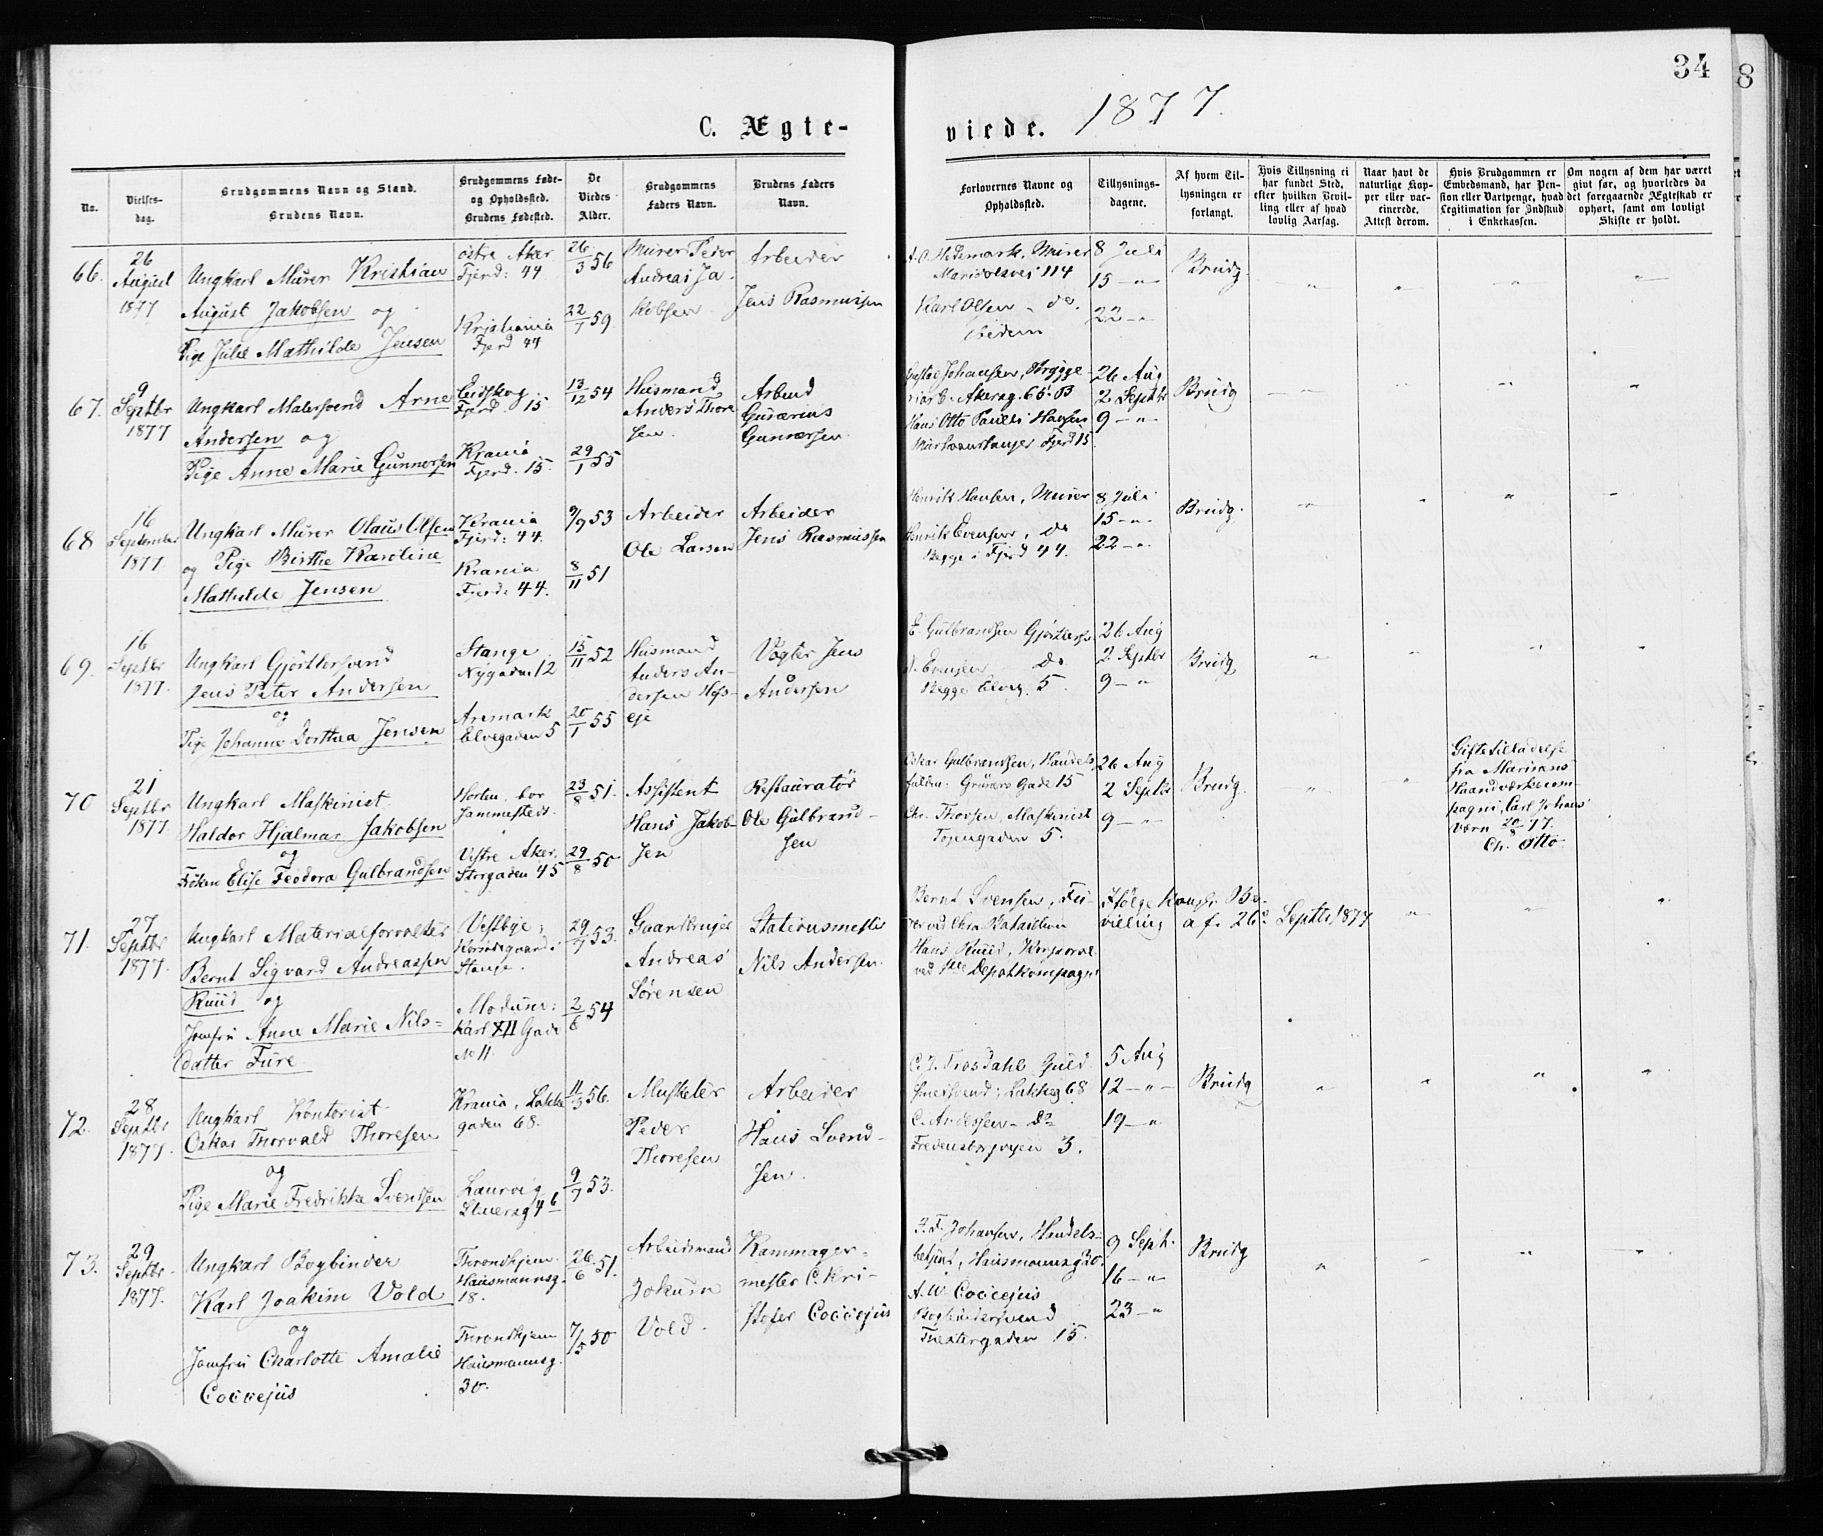 34
8
1877.
C. Ægte-
viede.
No.
Vielses-
dag.
Brudgommens Navn og Stand.
Brudens Navn.
Brudgommens Føde-
og Opholdssted.
Brudens Fødested.
De
Viedes
Alder.
Brudgommens
Faders Navn.
Brudens Faders
Navn.
Forlovernes Navne og
Opholdssted.
Tillysnings-
dagene.
Af hvem Til-
lysningen er
forlangt.
Hvis Tillysning ei
har fundet Sted,
efter hvilken Bevil-
ling eller af hvad
lovlig Aarsag.
Naar havt de
naturlige Kop-
per eller vac-
cinerede.
Attest derom.
Hvis Brudgommen er
Embedsmand, har Pen-
sion eller Vartpenge, hvad
Legitimation for Indskud
i Enkekassen.
Om nogen af dem har været
givt før, og hvorledes da
det foregaaende Ægteskab er
ophørt, samt om lovligt
Skifte er holdt.
66.
26
August
1877
Ungkarl Murer Kristian
August Jakobsen og
Pige Julie Mathilde Jensen
østre Aker
Fjerd: 44
Kristiania
Fjerd 44
26/3 56
22/7 59
Murer Peder
Andreas Ja-
kobsen
Arbeider
Jens Rasmussen
A. O. Hedemark, Murer
Maridalsvei 114
Karl Olsen - do.
ibidem
8 Juli
15 - "
22 - "
Brudg.
67.
9
Septbr
1877
Ungkarl Malersvend Arne
Andersen og
Pige Anne Marie Gunnersen
Eidskog
Fjerd 15
Krania
Fjerd. 15.
13/12 54
29/1 55
Husmand
Anders Thore
sen.
Arbeid
Gunnersen.
Gustav Johansen, Brygge
Akersg. 65 B
Hans Otto Paulus Hansen
Fjerd 15
26 Aug
2 Septbr
9 - "
Brudg
68
16
September
1877
Ungkarl Murer Olaus Olsen
og Pige Birthe Karoline
Mathilde Jensen
Krania
Fjerd: 44.
Krania
Fjerd: 44.
9/9 53
8/11 51
Arbeider
Ole Larsen
Arbeider
Jens Rasmussen
Henrik Hansen, Murer
Henrik Evensen, Do
Begge i Fjerd 44.
8 Juli
15 - "
22 - "
Brudg.
69.
16
Septbr
1877.
Ungkarl Gjørtlersvend
Jens Peter Andersen
og
Pige Johanne Dorthea Jensen
Stange
Nygaden 12
Aremark
Elvegaden 5
15/11 52
20/1 55
Husmand
Anders An-
dersen Hos-
eje
Vogter Jens
Andersen
E. Gulbrandsen Gjørtlersv.
Evensen Do
Begge Elveg. 5.
26 Aug
2 Septbr
9 - "
Brudg
70
21
Septbr
1877
Ungkarl Maskinist
Haldor Hjalmar Jakobsen
og
Frøken Elise Feodora Gulbrandsen
Horten, bor
sammesteds.
Vestre Aker.
Storgaden 45
23/8 51.
29/8 50
Assistent
Hans Jakob-
sen
Restauratør
Ole Gulbrand-
sen
Oskar Gulbrandsen, Handels
fuldm. Grüners Gade 15
Chr. Thorsen, Maskinist
Tøjengaden 5.
26 Aug
2 Septbr
9 - "
Brudg.
Giftetilladelse
fra Marinens
Haandverkscom-
pagni, Carl Johans
Værn 20/8 77.
Ch. Otto
71.
27
Septbr
1877.
Ungkarl Materialforvalter
Bernt Sigvard Andreassen
Ruud og
Jomfru Anne Marie Nils-
datter Fure
Vestbye;
Stange.
Modum:
Karl XII Gade
No 11.
29/7 53.
2/6 54
Gaardbruger
Andreas
Sørensen
Stationsmester
Nils Andersen.
Bernt Svensen, Fu-
rer ved Chra Bataillon
Hans Ruud, Korporal
ved Depotkompagni
Ifølge Kongs. Be-
villing af 26de Septbr 1877
72.
28
Septbr
1877.
Ungkarl Kontorist
Oskar Thorvald Thoresen
og
Pige Marie Fredrikke Svendsen
Krania, Lakke
gaden 68.
Laurvig
Stenersg 4 6
11/3 56.
9/7 53.
Musketer
Peder
Thoresen
Arbeider
Hans Svend-
sen.
C. J. Frosdahl Guld
smedsvend, Lakkeg 68
C. Andersen - Do
Fredensborgvejen 3.
5 Aug
12 - " -
19 - "
Brudg
73.
29
Septbr
1877.
Ungkarl Bogbinder
Karl Joakim Vold
og
Jomfru Charlotte Amalie
Coccejus
Throndhjem
Hausmannsg.
18.
Throndhjem
Hausmannsg.
30.
26/6 51.
7/5 50
Arbeidsmand
Jokum
Vold.
Kammager-
mester C. Kri-
stofer Coccejus
F. F. Johansen, Handels-
betjent, Hausmannsg 30.
A. W. Coccejus
Bogbindersvend
Theatergaden 15.
9 Septb.
16 - "
23 - "
Brudg